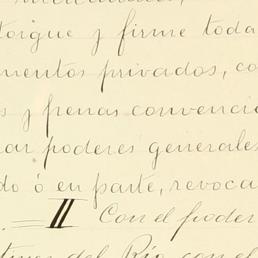 torgue y firme toda
mentos privados, co
s y penas convenci
ar poderes generales
do ó en parte, revoca
II Con el poder
del Río con el